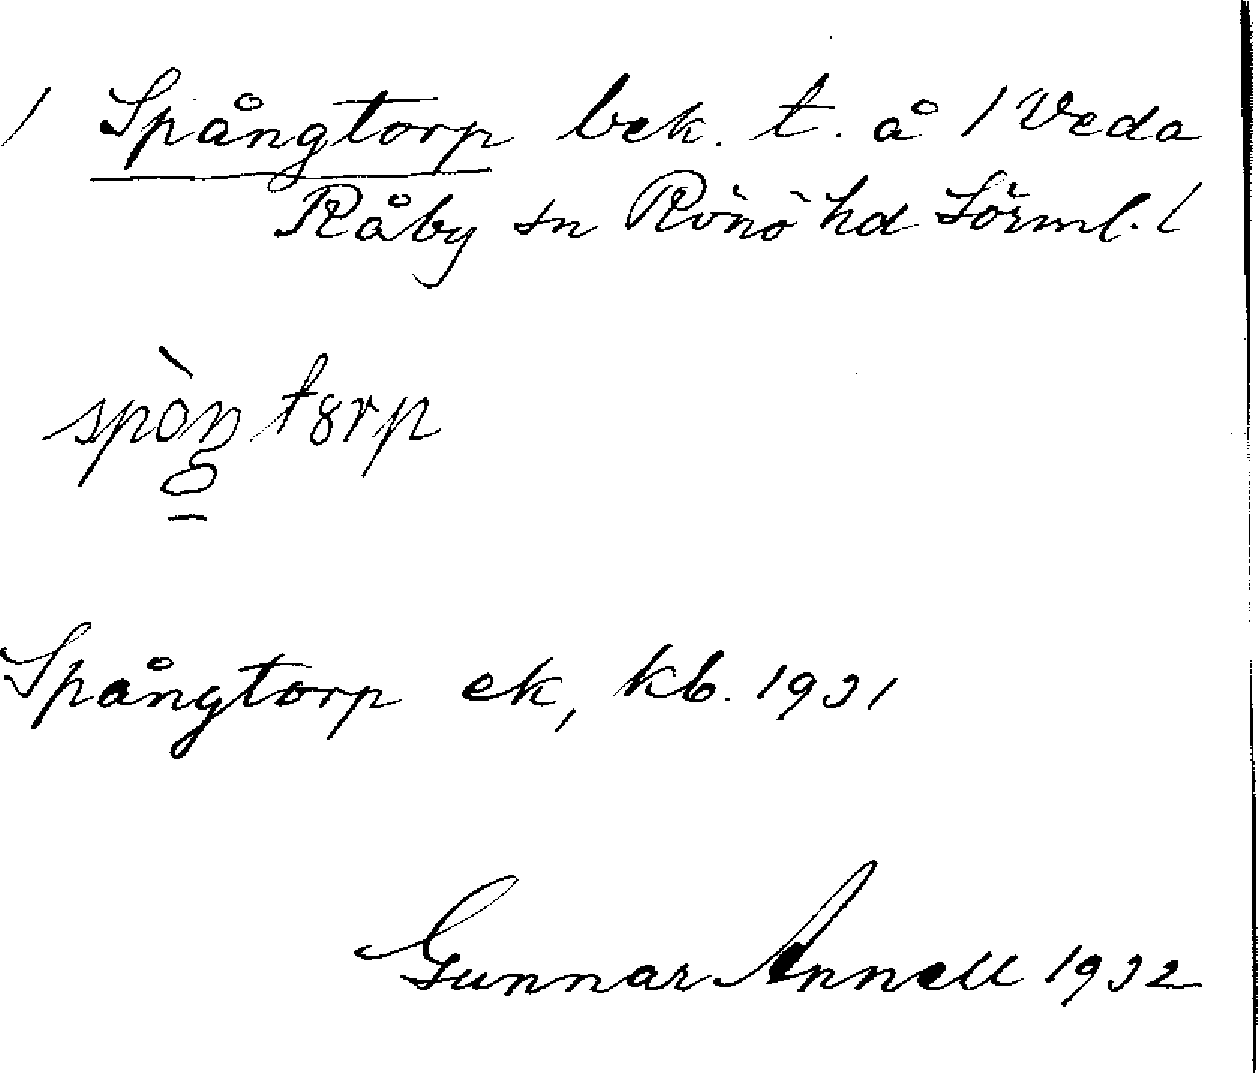 / Spångtorp bek. t. å / Veda
Råby sn Rönö hd Sörml. /
spòŋtorp
Spångtorp ek, kb. 1931
Gunnar Annell 1932